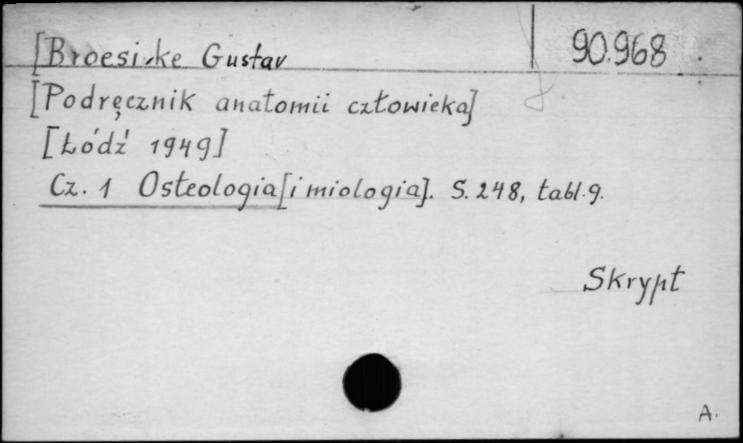 [Broesike Gustav 90.968
[Podręcznik anatomii człowieka]
[Łódź 1949]
Cz. 1 Osteologia [i miologia]. S. 248, tabl. 9.
Skrypt
A.